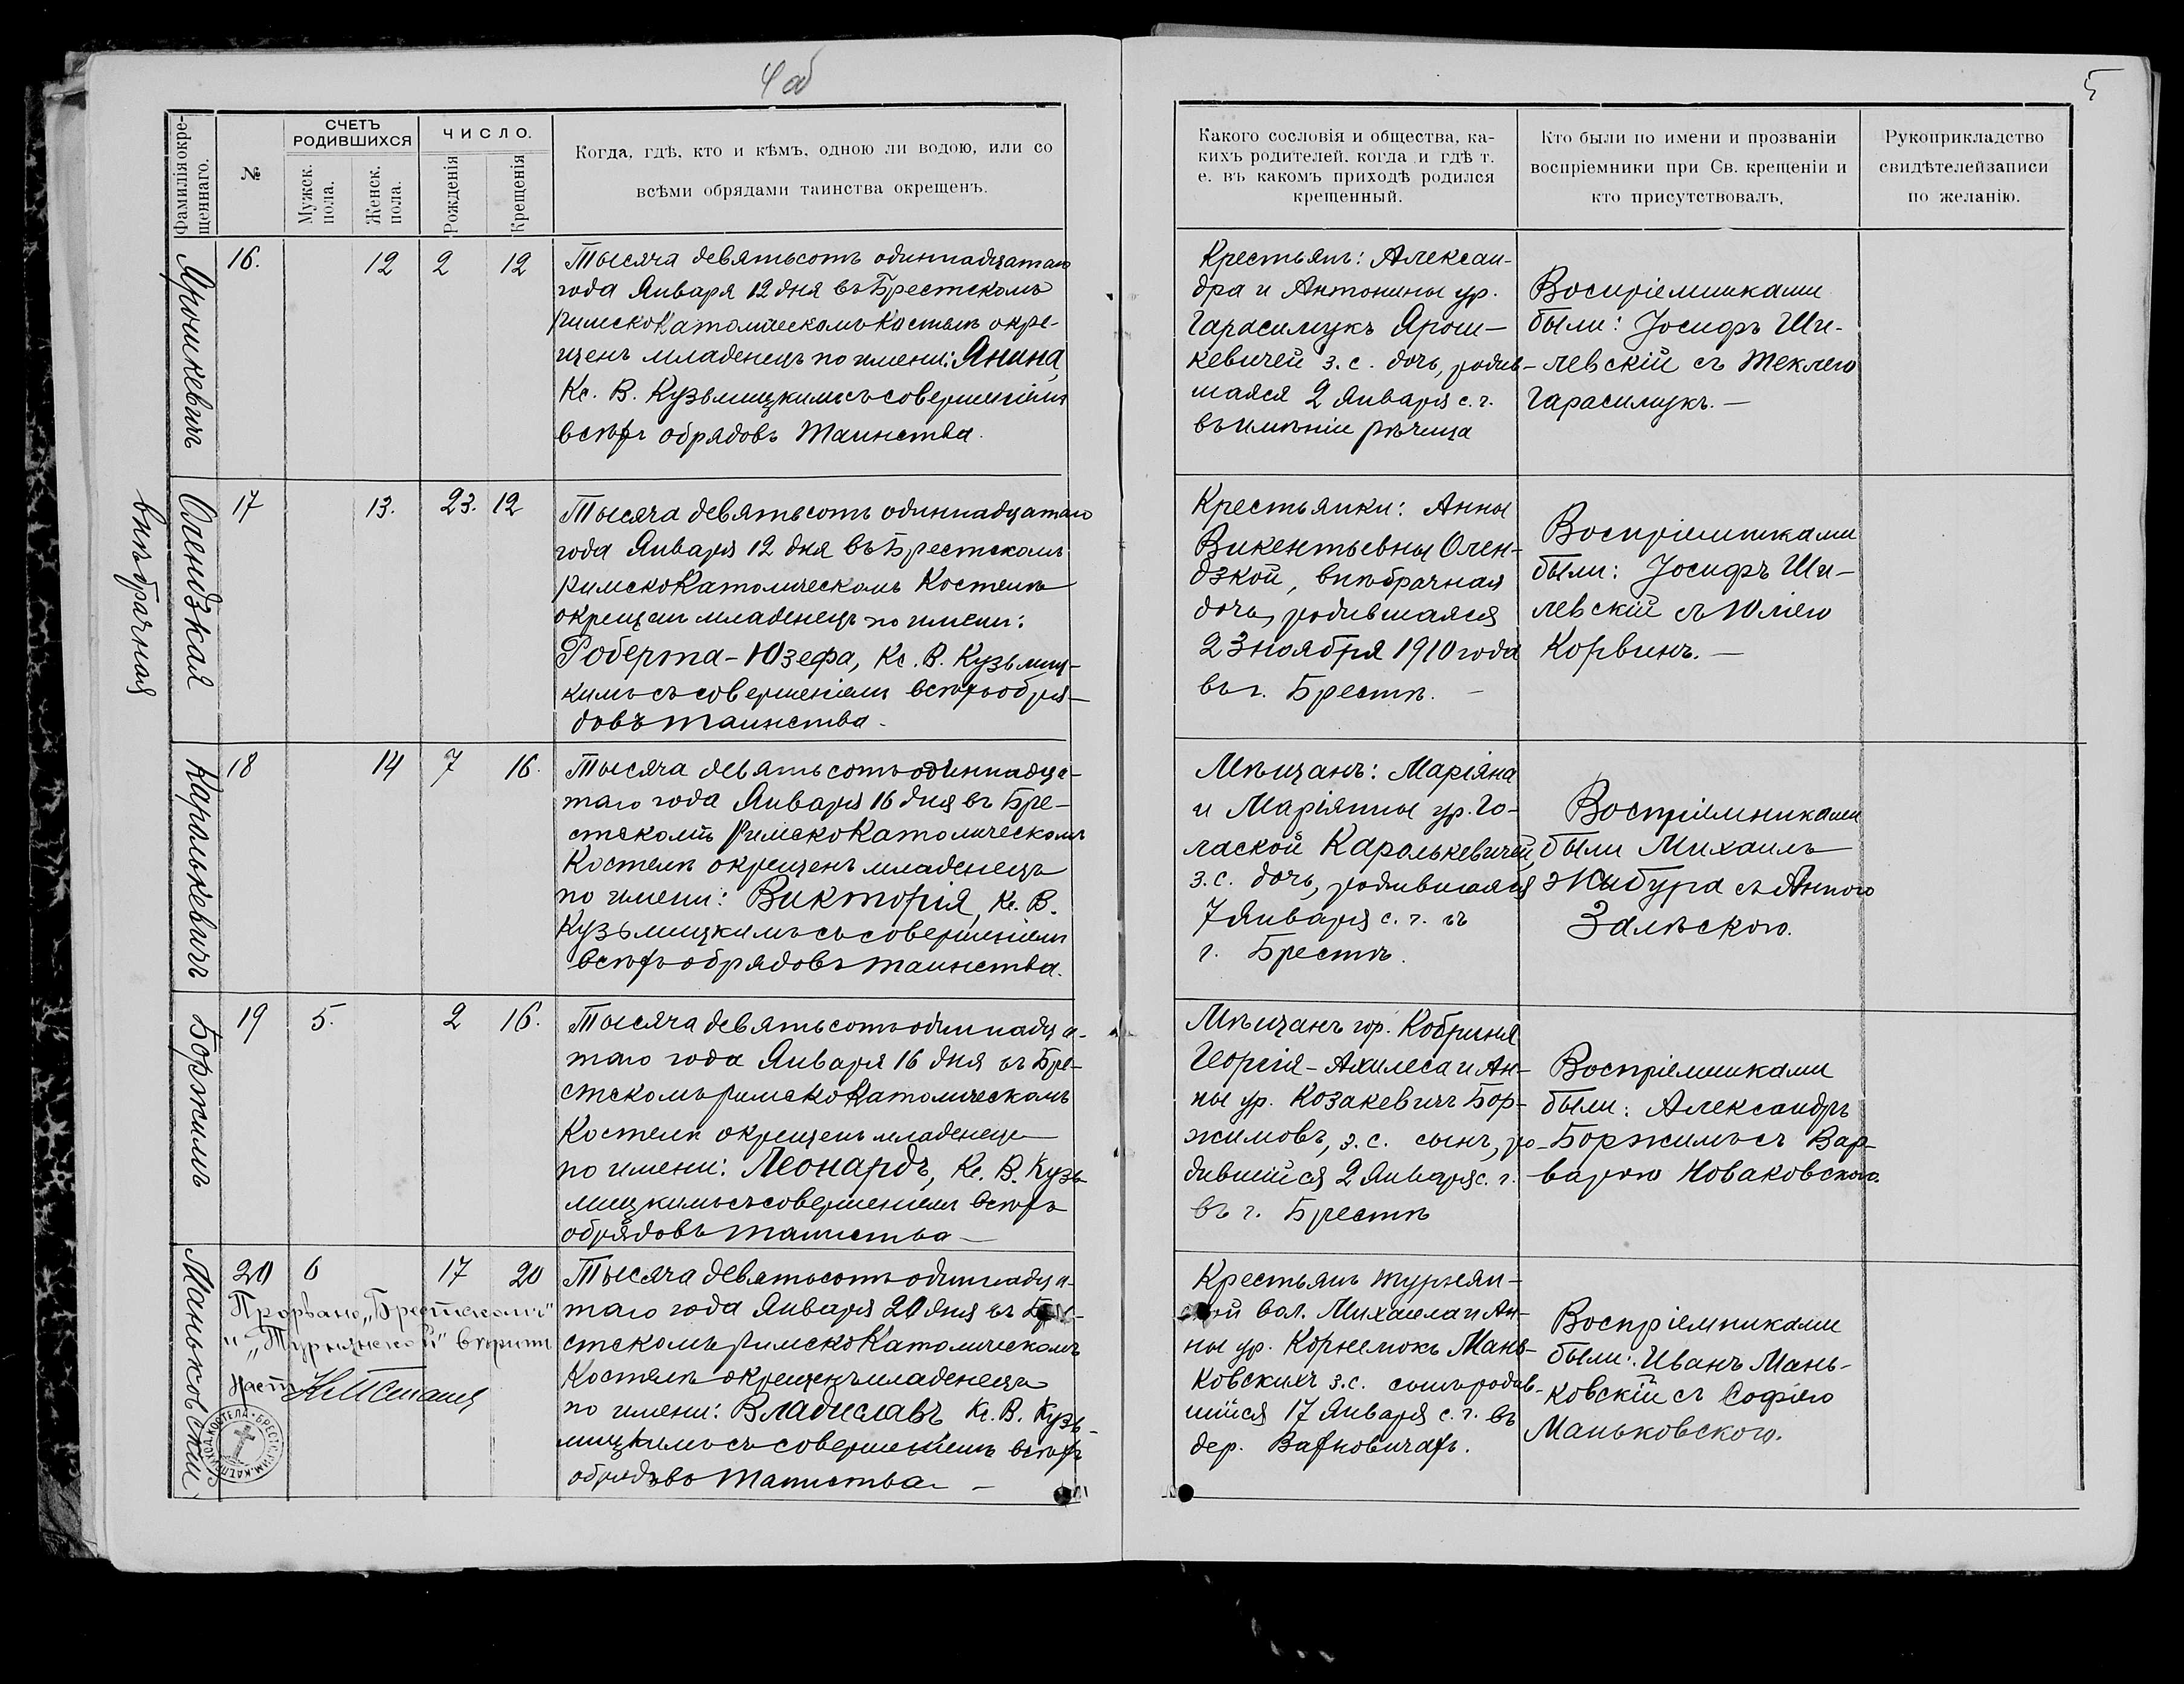 4 об
5
Фамилія окре-
щеннаго.
№
СЧЕТЪ
РОДИВШИХСЯ
Мужск.
пола.
Женск.
пола.
ЧИСЛО.
Рожденія
Крещенія
Когда, гдѣ, кто и кѣмъ, одною ли водою, или со
всѣми обрядами таинства окрещенъ.
Какого сословія и общества, ка-
кихъ родителей, когда и гдѣ т.
е. въ какомъ приходѣ родился
крещенный.
Кто были по имени и прозванію
воспріемники при Св. крещеніи и
кто присутствовалъ.
Рукоприкладство
свидѣтелей записи
по желанію.
Ярошкевичъ
16.
12
2
12
Тысяча девятьсотъ одиннадцатаго
года Января 12 дня въ Брестскомъ
римско Католическомъ Костелѣ окре-
щенъ младенецъ по имени: Янина,
Кс. В. Кузьмицкимъ съ совершеніемъ
всѣхъ обрядовъ Таинства.
Крестьянъ: Александ-
дра и Антонины ур.
Гарасимукъ Ярош-
кевичей з. с. дочь, родив-
шаяся 2 Января с. г.
въ имѣніи Рѣчица
Воспріемниками
были: Іосифъ Ши-
левскій съ Теклею
Гарасимукъ. —
Олендзкая
внѣбрачная
17
13.
23.
12
Тысяча девятьсотъ одиннадцатаго
года Января 12 дня въ Брестскомъ
римско Католическомъ Костелѣ
окрещенъ младенецъ по имени:
Роберта-Юзефа, Кс. В. Кузьмиц-
кимъ съ совершеніемъ всѣхъ обря-
довъ таинства.
Крестьянки: Анны
Викентьевны Олен-
дзкой, внѣбрачная
дочь, родившаяся
23 ноября 1910 года
въ г. Брестѣ. —
Воспріемниками
были: Іосифъ Ши-
левскій съ Юліею
Корвинъ. —
Каролькевичъ
18
14
7
16.
Тысяча девятьсотъ одиннадца-
таго года Января 16 дня въ Бре-
стскомъ Римско Католическомъ
Костелѣ окрещенъ младенецъ
по имени: Викторія, Кс. В.
Кузьмицкимъ съ совершеніемъ
всѣхъ обрядовъ таинства.
Мѣщанъ: Маріяна
и Маріянны ур. Го-
лаской Каролькевичей,
з. с. дочь, родившаяся
7 Января с. г. въ
г. Брестѣ.
Воспріемниками
были Михаилъ
Жибура съ Анною
Залѣскою.
Боржимъ
19
5.
2
16.
Тысяча девятьсотъ одиннадца-
таго года Января 16 дня въ Бре-
стскомъ римско Католическомъ
Костелѣ окрещенъ младенецъ
по имени: Леонардъ, Кс. В. Кузь-
мицкимъ съ совершеніемъ всѣхъ
обрядовъ таинства —
Мѣщанъ гор. Кобриня
Георгія-Ахилеса и Ан-
ны ур. Козакевичъ Бор-
жимовъ, з. с. сынъ, ро-
дившійся 2 Января с. г.
въ г. Брестѣ
Воспріемниками
были: Александръ
Боржимъ съ Вар-
варою Новаковскою.
Маньковскій
20
6
17
20
Прорвано „Брестскомъ"
и „Турнянской" вѣрити
Наст.
Тысяча девятьсотъ одиннадца-
таго года Января 20 дня въ Бре-
стскомъ римско Католическомъ
Костелѣ окрещенъ младенецъ
по имени: Владиславъ Кс. В. Кузь-
мицкимъ съ совершеніемъ всѣхъ
обрядовъ Таинства —
Крестьянъ Турнян-
ской вол. Михаила и Ан-
ны ур. Корнелюкъ Мань-
ковскихъ з. с. сынъ родив-
шійся 17 Января с. г. въ
дер. Вахновичахъ.
Воспріемниками
были: Иванъ Мань-
ковскій съ Софіею
Маньковскою.